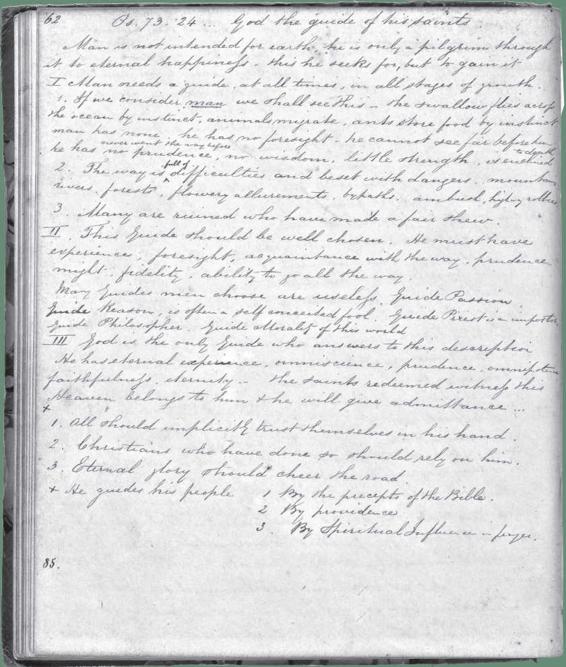 62 Ps. 73. 24 ... God the guide of his saints
Man is not intended for earth he is only a pilgrim through
it to eternal happiness - this he seeks for, but to gain it
I Man needs a guide, at all times, in all stages of growth.
1. If we consider man we shall see this - the swallow flees across
the ocean by instinct, animals migrate, ants store food by instinct
man has none, he has no foresight, he cannot see far before him
never went the way before
he has no prudence, no wisdom, little strength,
2. The way is full of difficulties and beset with dangers. mountains,
rivers, forests, flowery allurements, bypaths, ambush,
3. Many are ruined who have made a fair shew.
II This Guide should be well chosen. He must have
experience, foresight, acquaintance with the way, prudence
might, fidelity, ability to go all the way
Many Guides men choose are useless. Guide Passion.
Guide Reason, is often a self conceited fool. Guide Priest is an impostor
Guide Philosopher. Guide Morality of this world
III God is the only Guide who answers to this description
He has eternal experience, omniscience, prudence, omnipotence
faithfulness, eternity - the saints redeemed witness this
Heaven belongs to him & he will give admittance ...
+
1. All should implicitly trust themselves in his hand.
2. Christians who have done so should rely on him.
3. Eternal glory should cheer the road.
+ He guides his people 1 By the precepts of the Bible.
2 By providence
3. By Spiritual Influence
85.